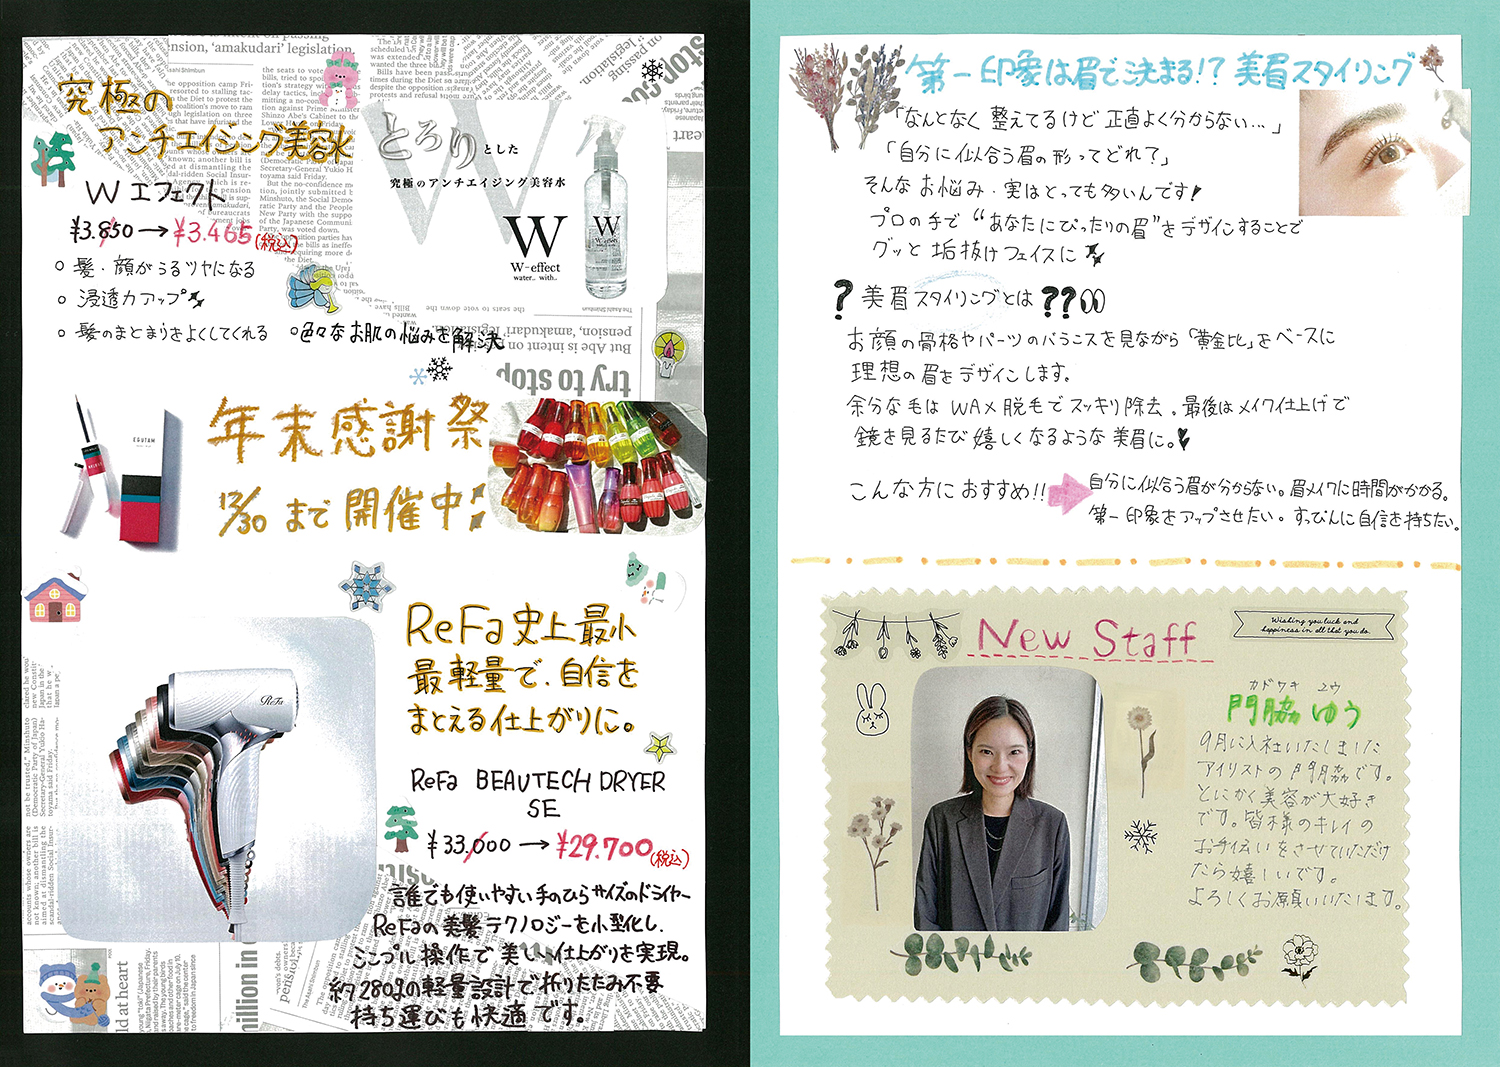 究極の
アンチエイジング美容水
Wエフェクト
¥3.850→¥3.465(税込)
○髪・顔がうるツヤになる
○浸透力アップ
○髪のまとまりをよくしてくれる ○色々なお肌の悩みを解決
とろりとした
究極のアンチエイジング美容水
W
W-effect
water.. with..
年末感謝祭
12/30まで開催中!!
EGUTAM
ReFa
ReFa史上最小
最軽量で、自信を
まとえる仕上がりに。
ReFa BEAUTECH DRYER
SE
¥33,000→¥29.700(税込)
誰でも使いやすい手のひらサイズのドライヤー
ReFaの美髪テクノロジーを小型化し、
シンプル操作で美しい仕上がりを実現。
約280gの軽量設計で折りたたみ不要
持ち運びも快適です。
第一印象は眉で決まる!?美眉スタイリング
「なんとなく整えてるけど正直よく分からない…」
「自分に似合う眉の形ってどれ?」
そんなお悩み・実はとっても多いんです!
プロの手で“あなたにぴったりの眉”をデザインすることで
グッと垢抜けフェイスに
?美眉スタイリングとは??
お顔の骨格やパーツのバランスを見ながら「黄金比」をベースに
理想の眉をデザインします。
余分な毛はWAX脱毛でスッキリ除去。最後はメイク仕上げで
鏡を見るたび嬉しくなるような美眉に。
こんな方におすすめ!!
自分に似合う眉が分からない。眉メイクに時間がかかる。
第一印象をアップさせたい。すっぴんに自信を持ちたい。
New Staff
Wishing you luck and
happiness in all that you do.
カドワキ ユウ
門脇 ゆう
9月に入社いたしました
アイリストの門脇です。
とにかく美容が大好き
です。皆様のキレイの
お手伝いをさせていただけ
たら嬉しいです。
よろしくお願いいたします。